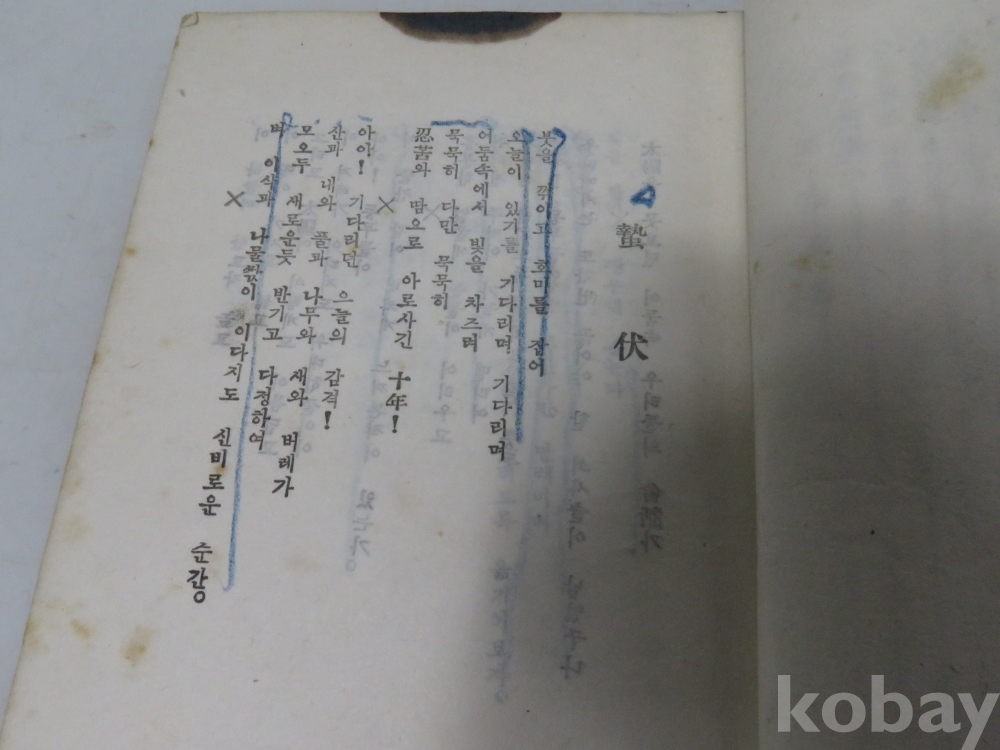 蟄伏
붓을 꺾이고 호미를 잡어
오늘이 있기를 기다리며 기다리며
어둠속에서 빛을 차즈며
묵묵히 다만 묵묵히
忍苦와 땀으로 아로사긴 十年!
×
아아! 기다리던 으늘의 감격!
산과 내와 풀과 나무와 새와 버레가
모오두 새로운듯 반기고 다정하여
벼 이삭과 나물쌊이 이다지도 신비로운 순간
×
kobay